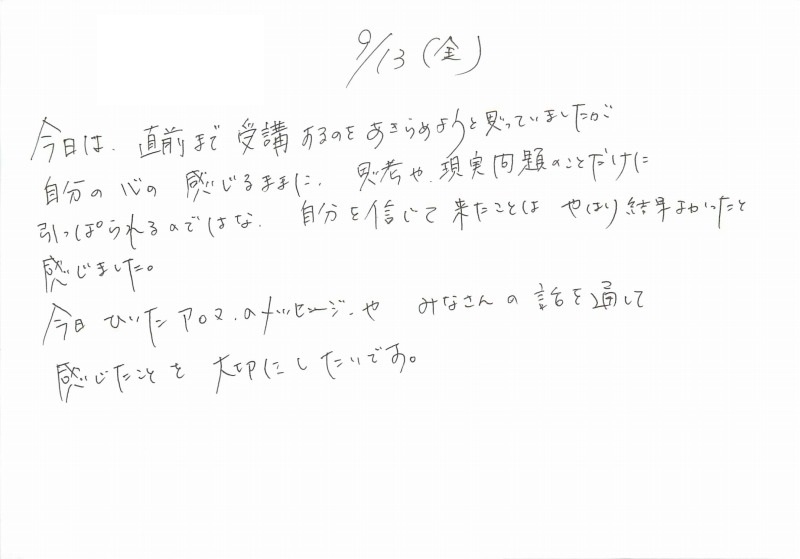 9/13（金）
今日は、直前まで受講するのをあきらめようと思っていましたが
自分の心の感じるままに、思考や、現実問題のことだけに
引っぱられるのではな、自分を信じて来たことはやはり結果よかったと
感じました。
今日ひいたアロマ、のメッセージ、やみなさんの話を通して
感じたことを大切にしたいです。